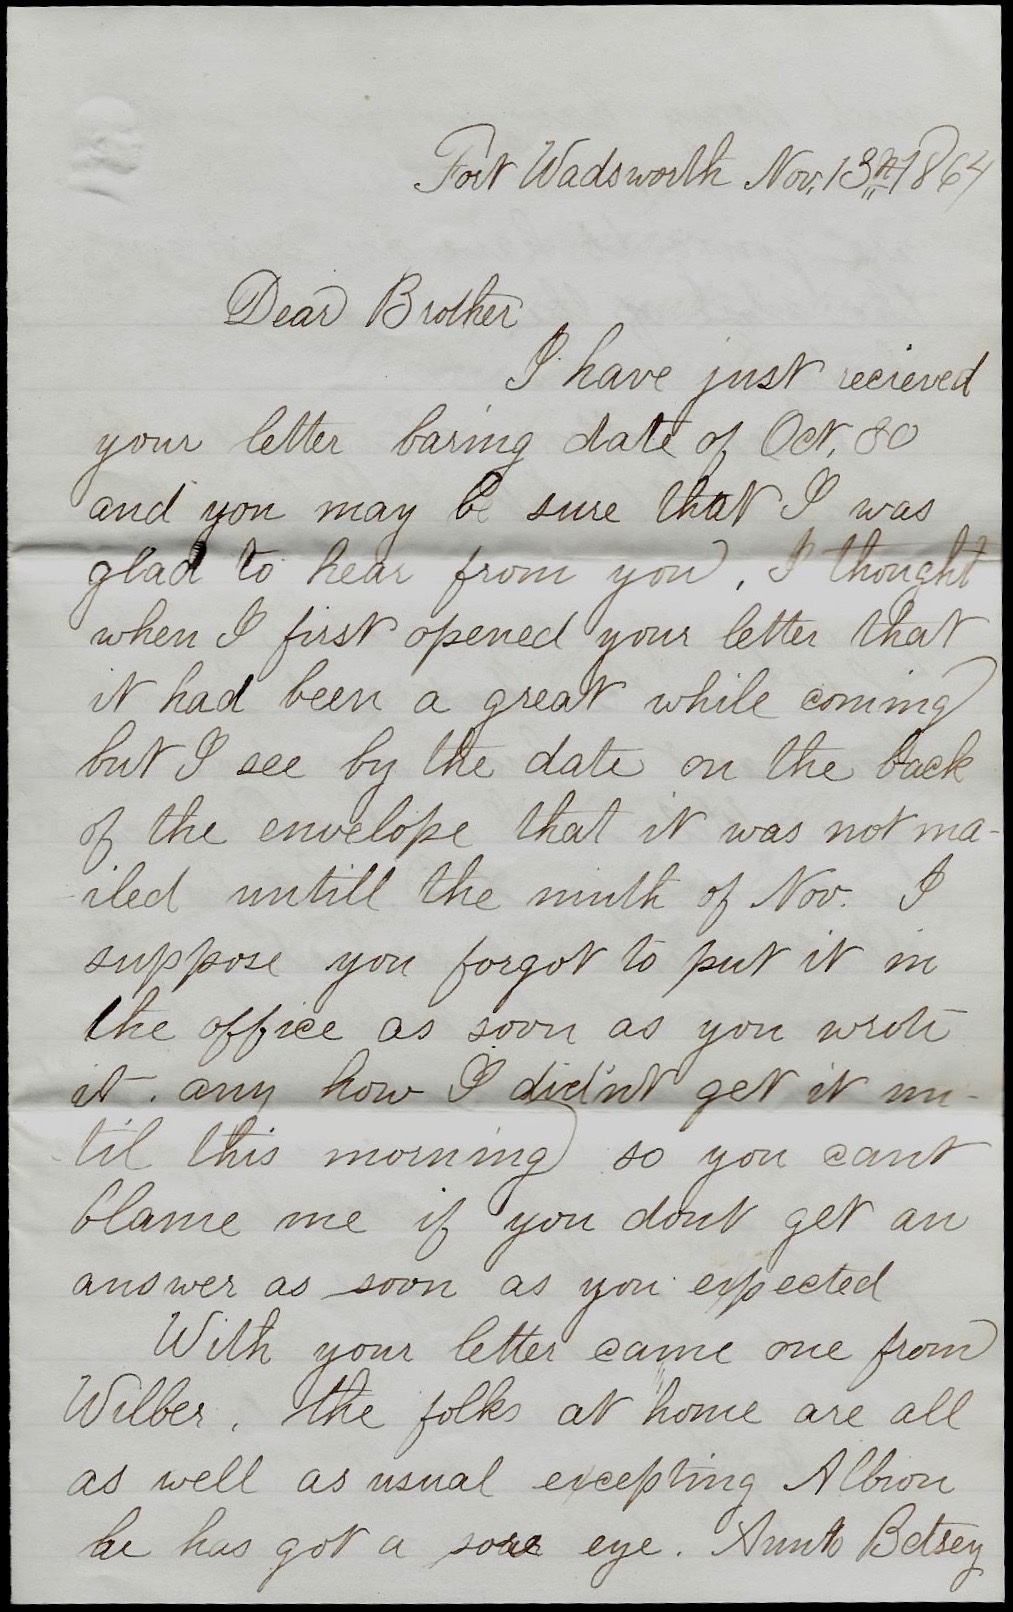 Fort Wadsworth Nov, 13th 1864
Dear Brother
I have just recieved
your letter baring date of Oct, 30
and you may be sure that I was
glad to hear from you, I thought
when I first opened your letter that
it had been a great while coming
but I see by the date on the back
of the envelope that it was not ma-
iled untill the ninth of Nov. I
suppose you forgot to put it in
the office as soon as you wrote
it. any how I did'nt get it un-
til this morning so you cant
blame me if you dont get an
answer as soon as you expected
With your letter came one from
Wilber. the folks at home are all
as well as usual excepting Albion
he has got a sore eye. Aunt Betsey